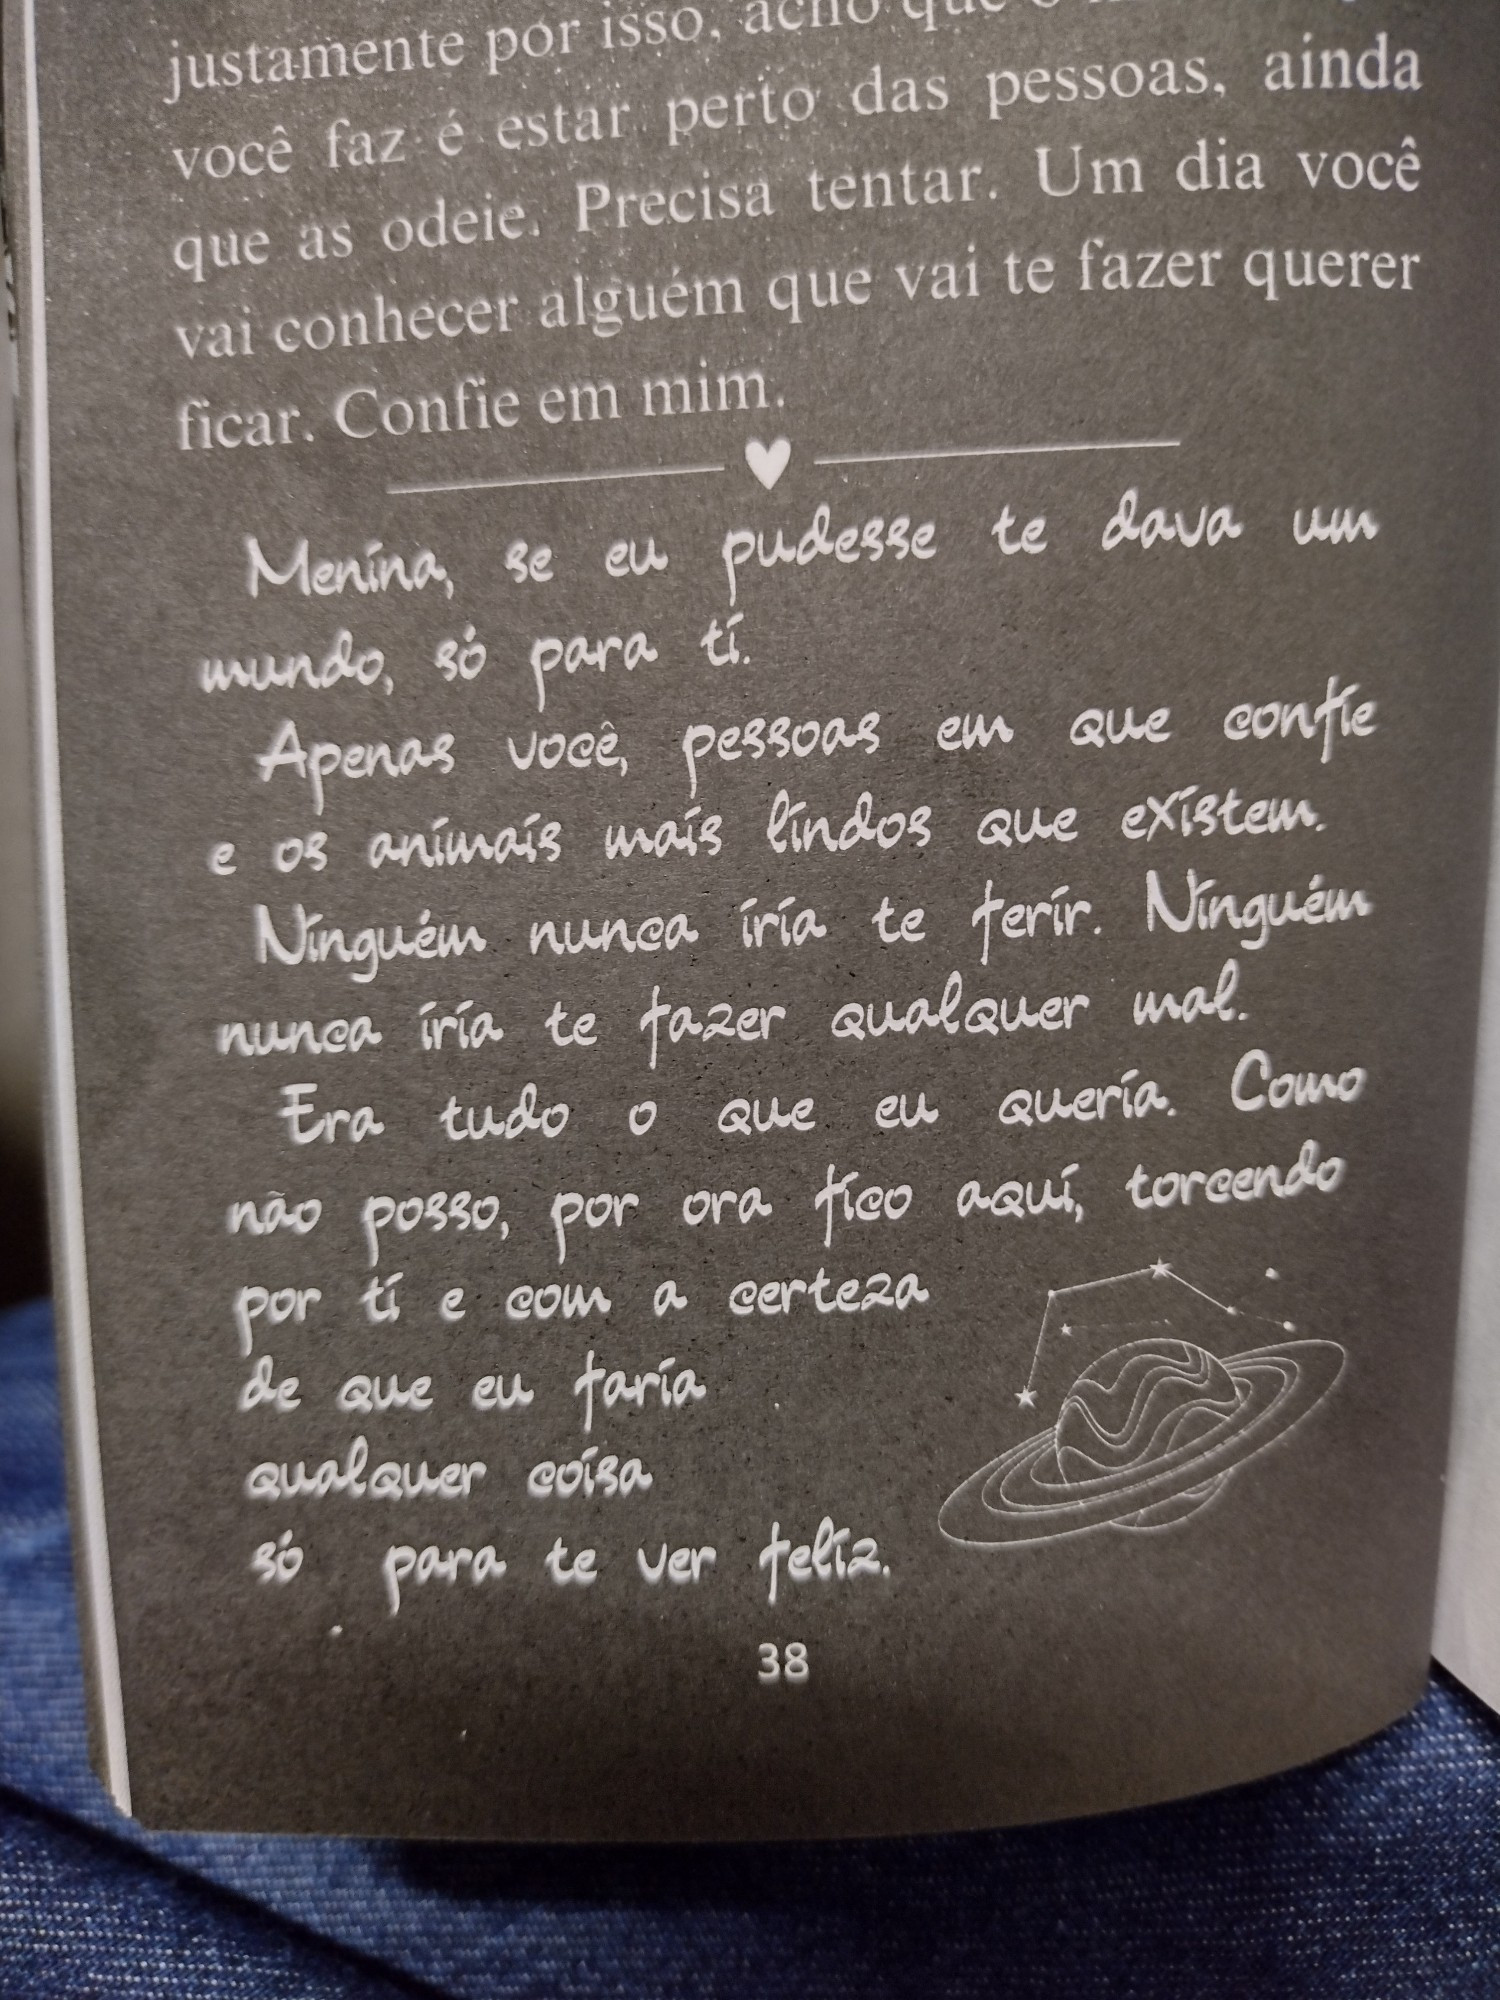 justamente por isso, acho que o
você faz é estar perto das pessoas, ainda
que as odeie. Precisa tentar. Um dia você
vai conhecer alguém que vai te fazer querer
ficar. Confie em mim.
Menina, se eu pudesse te dava um
mundo, só para ti.
Apenas você, pessoas em que confie
e os animais mais lindos que existem.
Ninguém nunca iria te ferir. Ninguém
nunca iria te fazer qualquer mal.
Era tudo o que eu queria. Como
não posso, por ora fico aqui, torcendo
por ti e com a certeza
de que eu faria
qualquer coisa
só para te ver feliz.
38